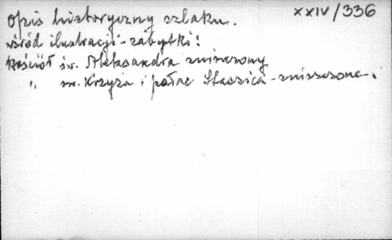 Opis historyczny szlaku. XXIV/336
wśród ilustracji - zabytki:
Kościół św. Aleksandra zniszczony
" św. Krzyża i pałac Staszica - zniszczone.